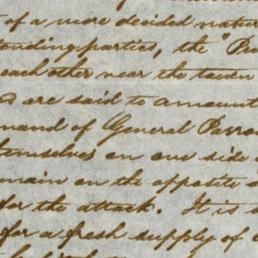 of a more decided natur
tending parties, the "Pu
each other near the town
are said to amount
mand of General Parro
themselves on one side
main on the opposite
for the attack. It is
for a fresh supply of